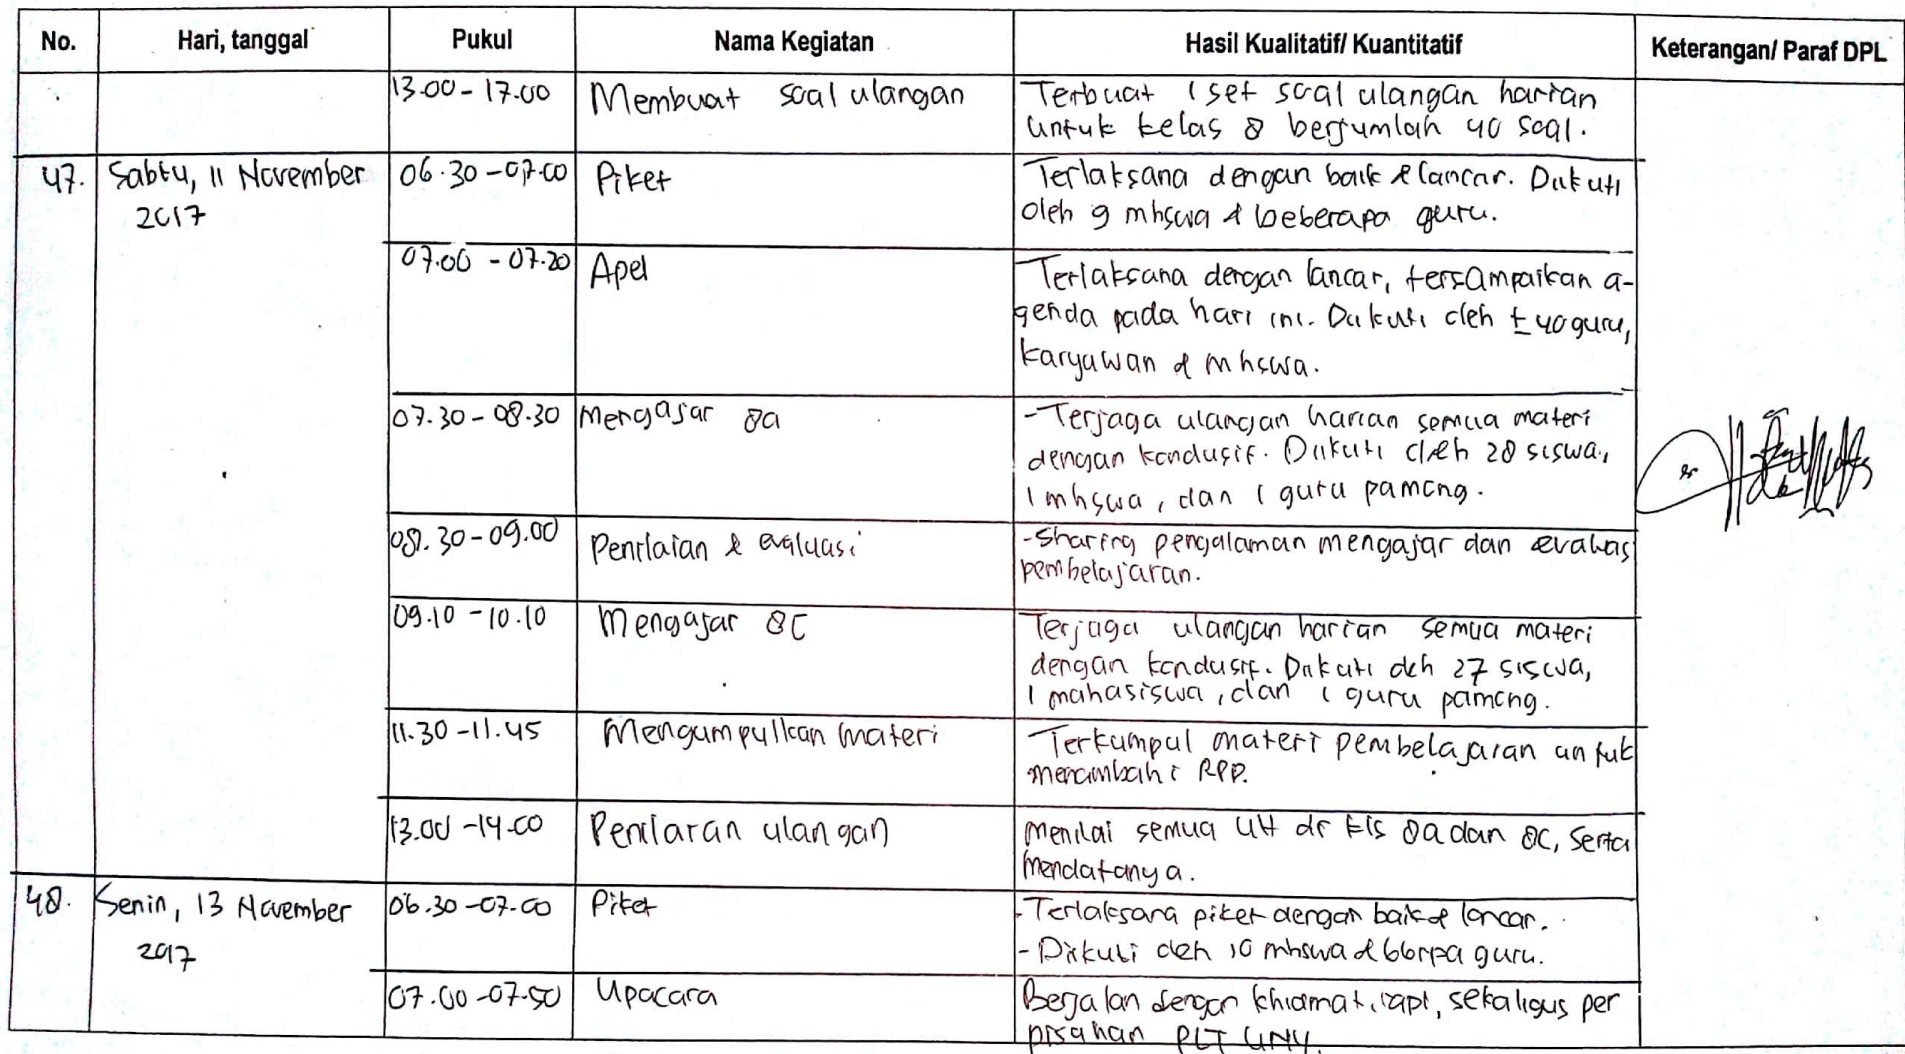 No. Hari, tanggal Pukul Nama Kegiatan Hasil Kualitatif/ Kuantitatif Keterangan/ Paraf DPL
13.00 - 17.00 Membuat soal ulangan Terbuat 1 set soal ulangan harian
untuk kelas 8 berjumlah 40 soal.
47. Sabtu, 11 November 06.30 - 07.00 Piket Terlaksana dengan baik & lancar. Diikuti
2017 oleh 9 mhswa & beberapa guru.
07.00 - 07.20 Apel Terlaksana dengan lancar, tersampaikan a-
genda pada hari ini. Diikuti oleh ± 40 guru,
karyawan & mhswa.
07.30 - 08.30 Mengajar 8a - Terjaga ulangan harian semua materi
dengan kondusif. Diikuti oleh 28 siswa,
1 mhswa, dan 1 guru pamong.
08.30 - 09.00 Penilaian & evaluasi - Sharing pengalaman mengajar dan evaluasi
pembelajaran.
09.10 - 10.10 Mengajar 8C Terjaga ulangan harian semua materi
dengan kondusif. Diikuti oleh 27 siswa,
1 mahasiswa, dan 1 guru pamong.
11.30 - 11.45 Mengumpulkan materi Terkumpul materi pembelajaran untuk
menambahi RPP.
13.00 - 14.00 Penilaian ulangan Menilai semua UH dr kls 8a dan 8C, serta
mendatanya.
48. Senin, 13 November 06.30 - 07.00 Piket - Terlaksana piket dengan baik & lancar.
2017 - Diikuti oleh 10 mhswa & bbrpa guru.
07.00 - 07.50 Upacara Berjalan dengan khidmat, rapi, sekaligus per
pisahan PLT UNY.